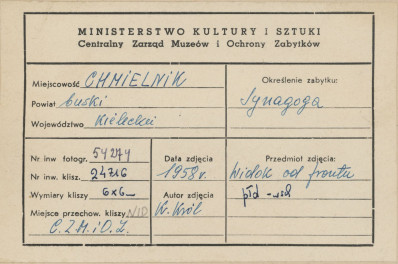 MINISTERSTWO KULTURY I SZTUKI
Centralny Zarząd Muzeów i Ochrony Zabytków
Miejscowość CHMIELNIK
Powiat buski
Województwo kielecki
Określenie zabytku:
Synagoga
Nr inw fotogr. 54274
Nr inw. klisz. 24716
Wymiary kliszy 6x6
Miejsce przechow. kliszy NID
C.Z.M.i.O.Z.
Data zdjęcia
1958 r.
Autor zdjęcia
K. Król
Przedmiot zdjęcia:
Widok od frontu
płd-wsch